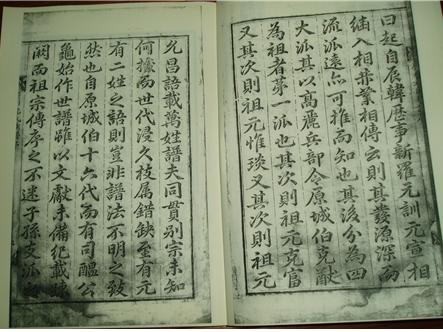 曰起自辰韓歷事新羅元訓元宣相
繼入相相傳云則其發源深而
流派遠亦可推而知也其後分為四
大派其以高麗兵部令原城伯克猷
為祖者第一派也其次則祖元克富
又其次則祖元惟琰又其次則祖元
允昌語載萬姓譜夫同貫別宗未知
何據而世代浸久枝属錯缺至有元
有二姓之語則豈非譜法不明之致
然也自原城伯十六代而有司醞公
龜始作世譜雖以文獻未備紀載疎
闕而祖宗傳序之不迷子孫支派